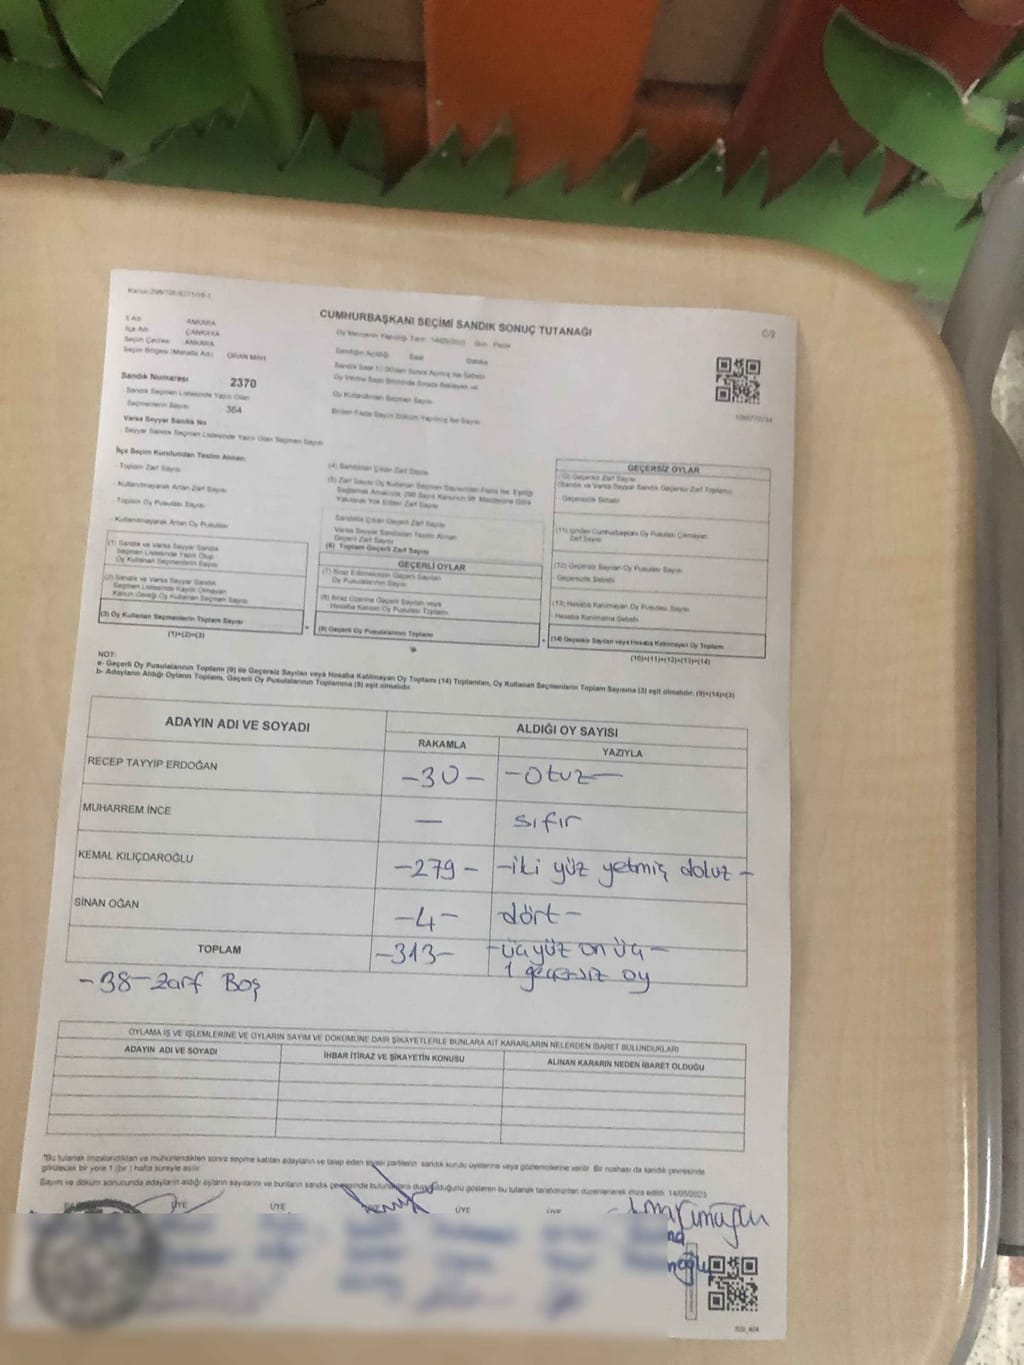 CUMHURBAŞKANI SEÇİMİ SANDIK SONUÇ TUTANAĞI
C/2
İl Adı ANKARA
İlçe Adı ÇANKAYA
Seçim Çevresi ANKARA
Seçim Bölgesi (Mahalle Adı) ORAN MAH.
Sandık Numarası 2370
Sandık Seçmen Listesinde Yazılı Olan
Seçmenlerin Sayısı 364
Varsa Seyyar Sandık No
- Seyyar Sandık Seçmen Listesinde Yazılı Olan Seçmen Sayısı
Oy Kullandırılan Seçmen Sayısı
İlçe Seçim Kurulundan Teslim Alınan:
- Toplam Zarf Sayısı
- Kullanılmayarak Artan Zarf Sayısı
- Toplam Oy Pusulası Sayısı
- Kullanılmayarak Artan Oy Pusulası
(1) Sandık ve Varsa Seyyar Sandık
Seçmen Listesinde Yazılı Olup
Oy Kullanan Seçmenlerin Sayısı
(2) Sandık ve Varsa Seyyar Sandık
Seçmen Listesinde Kayıtlı Olmayan
Kanun Gereği Oy Kullanan Seçmen Sayısı
(3) Oy Kullanan Seçmenlerin Toplam Sayısı
(1)+(2)=(3)
(4) Sandıktan Çıkan Zarf Sayısı
Sandıkta Çıkan Geçerli Zarf Sayısı
Varsa Seyyar Sandıktan Teslim Alınan
Geçerli Zarf Sayısı
(6) Toplam Geçerli Zarf Sayısı
GEÇERLİ OYLAR
(7) İtiraz Edilmeksizin Geçerli Sayılan
Oy Pusulalarının Sayısı
(8) İtiraz Üzerine Geçerli Sayılan veya
Hesaba Katılan Oy Pusulası Toplamı
(9) Geçerli Oy Pusulalarının Toplamı
GEÇERSİZ OYLAR
(10) Geçersiz Zarf Sayısı
(Sandık ve Varsa Seyyar Sandık Geçersiz Zarf Toplamı)
- Geçersizlik Sebebi
(11) İçinden Cumhurbaşkanı Oy Pusulası Çıkmayan
Zarf Sayısı
(12) Geçersiz Sayılan Oy Pusulası Sayısı
- Geçersizlik Sebebi
(13) Hesaba Katılmayan Oy Pusulası Sayısı
- Hesaba Katılmama Sebebi
(14) Geçersiz Sayılan veya Hesaba Katılmayan Oy Toplamı
(10)+(11)+(12)+(13)=(14)
NOT:
a- Geçerli Oy Pusulalarının Toplamı (9) ile Geçersiz Sayılan veya Hesaba Katılmayan Oy Toplamı (14) Toplamları, Oy Kullanan Seçmenlerin Toplam Sayısına (3) eşit olmalıdır. (9)+(14)=(3)
b- Adayların Aldığı Oyların Toplamı, Geçerli Oy Pusulalarının Toplamına (9) eşit olmalıdır.
ADAYIN ADI VE SOYADI
ALDIĞI OY SAYISI
RAKAMLA YAZIYLA
RECEP TAYYİP ERDOĞAN -30- -Otuz-
MUHARREM İNCE — sıfır
KEMAL KILIÇDAROĞLU -279- -iki yüz yetmiş dokuz-
SİNAN OĞAN -4- dört-
TOPLAM -313- -üçyüz on üç-
1 geçersiz oy
-38- zarf Boş
OYLAMA İŞ VE İŞLEMLERİNE VE OYLARIN SAYIM VE DÖKÜMÜNE DAİR ŞİKAYETLERLE BUNLARA AİT KARARLARIN NELERDEN İBARET BULUNDUKLARI
ADAYIN ADI VE SOYADI İHBAR İTİRAZ VE ŞİKAYETİN KONUSU ALINAN KARARIN NEDEN İBARET OLDUĞU
*Bu tutanak imzalandıktan ve mühürlendikten sonra seçime katılan adayların ve talep eden siyasi partilerin sandık kurulu üyelerine veya gözlemcilerine verilir. Bir nüshası da sandık çevresinde
görülecek bir yere 1 (bir) hafta süreyle asılır.
ÜYE ÜYE ÜYE ÜYE